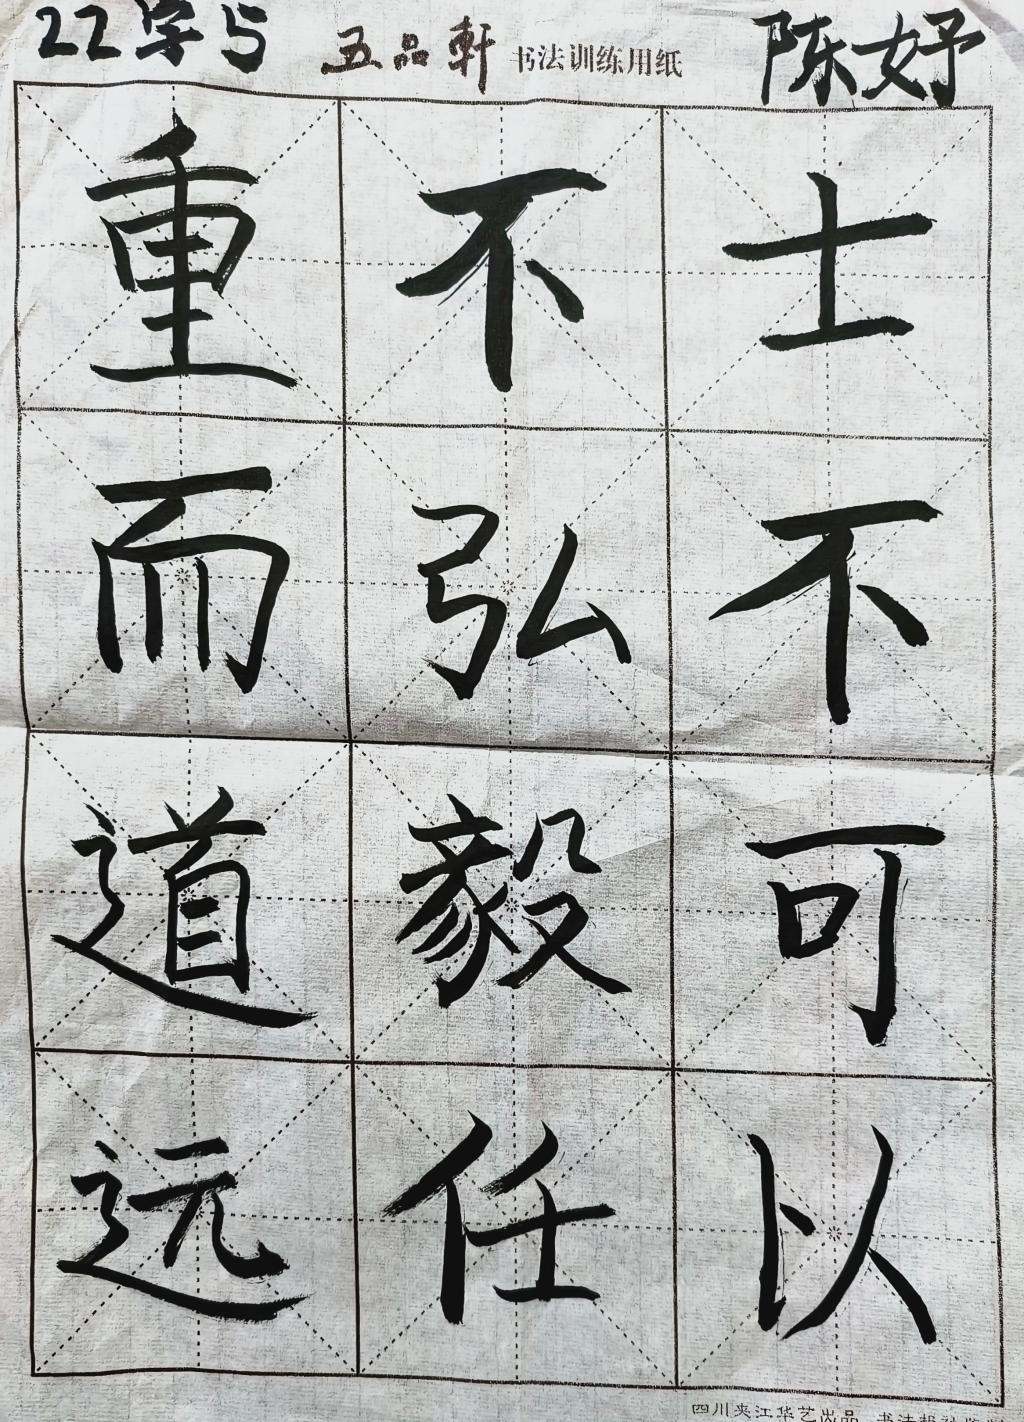 22字与
五品軒 书法训练用纸
陈妤
士不可以
不弘毅任
重而道远
四川夹江华艺出品